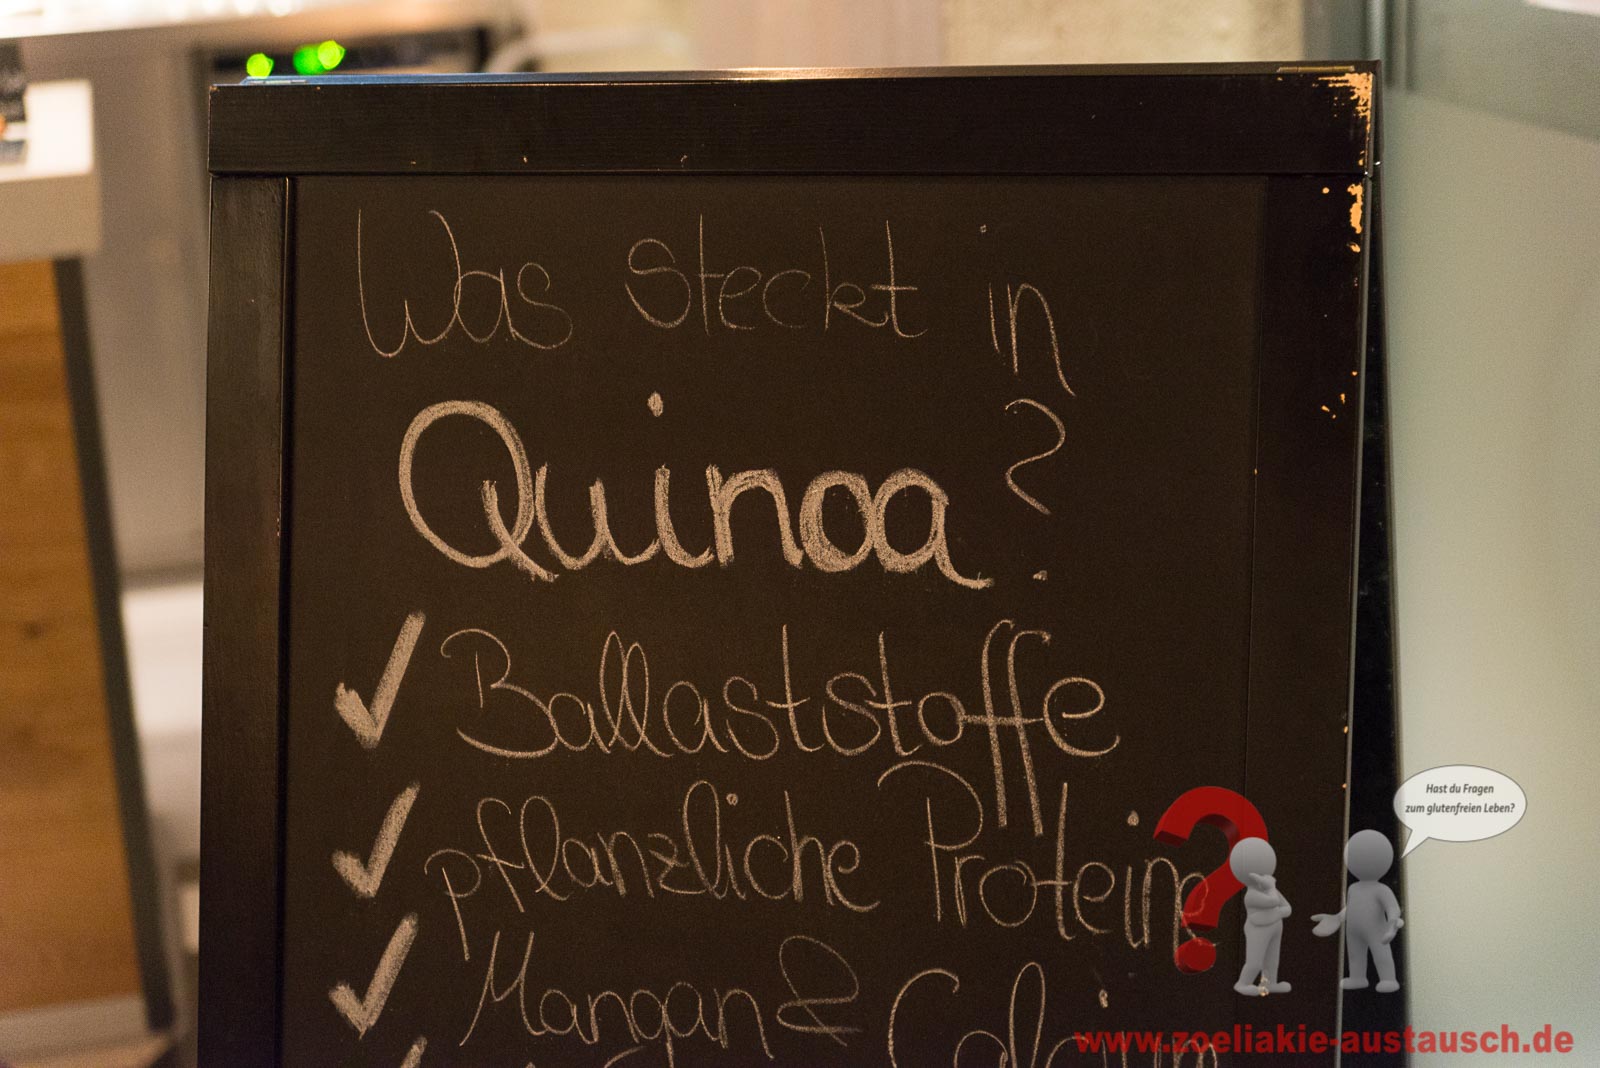 Was steckt in
Quinoa?
Ballaststoffe
pflanzliche Proteine
Mangan & Calcium
Hast du Fragen
zum glutenfreien Leben?
www.zoeliakie-austausch.de